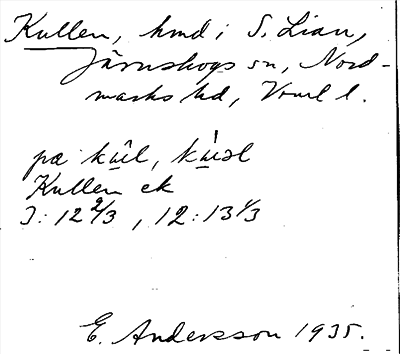 Kullen, hmd i S. Lian,
Järnskogs sn, Nord-
marks hd, Vrml l.
på kûl, 
Kullen ek
J: 12 2/3, 12: 13 1/3
E. Andersson 1935.